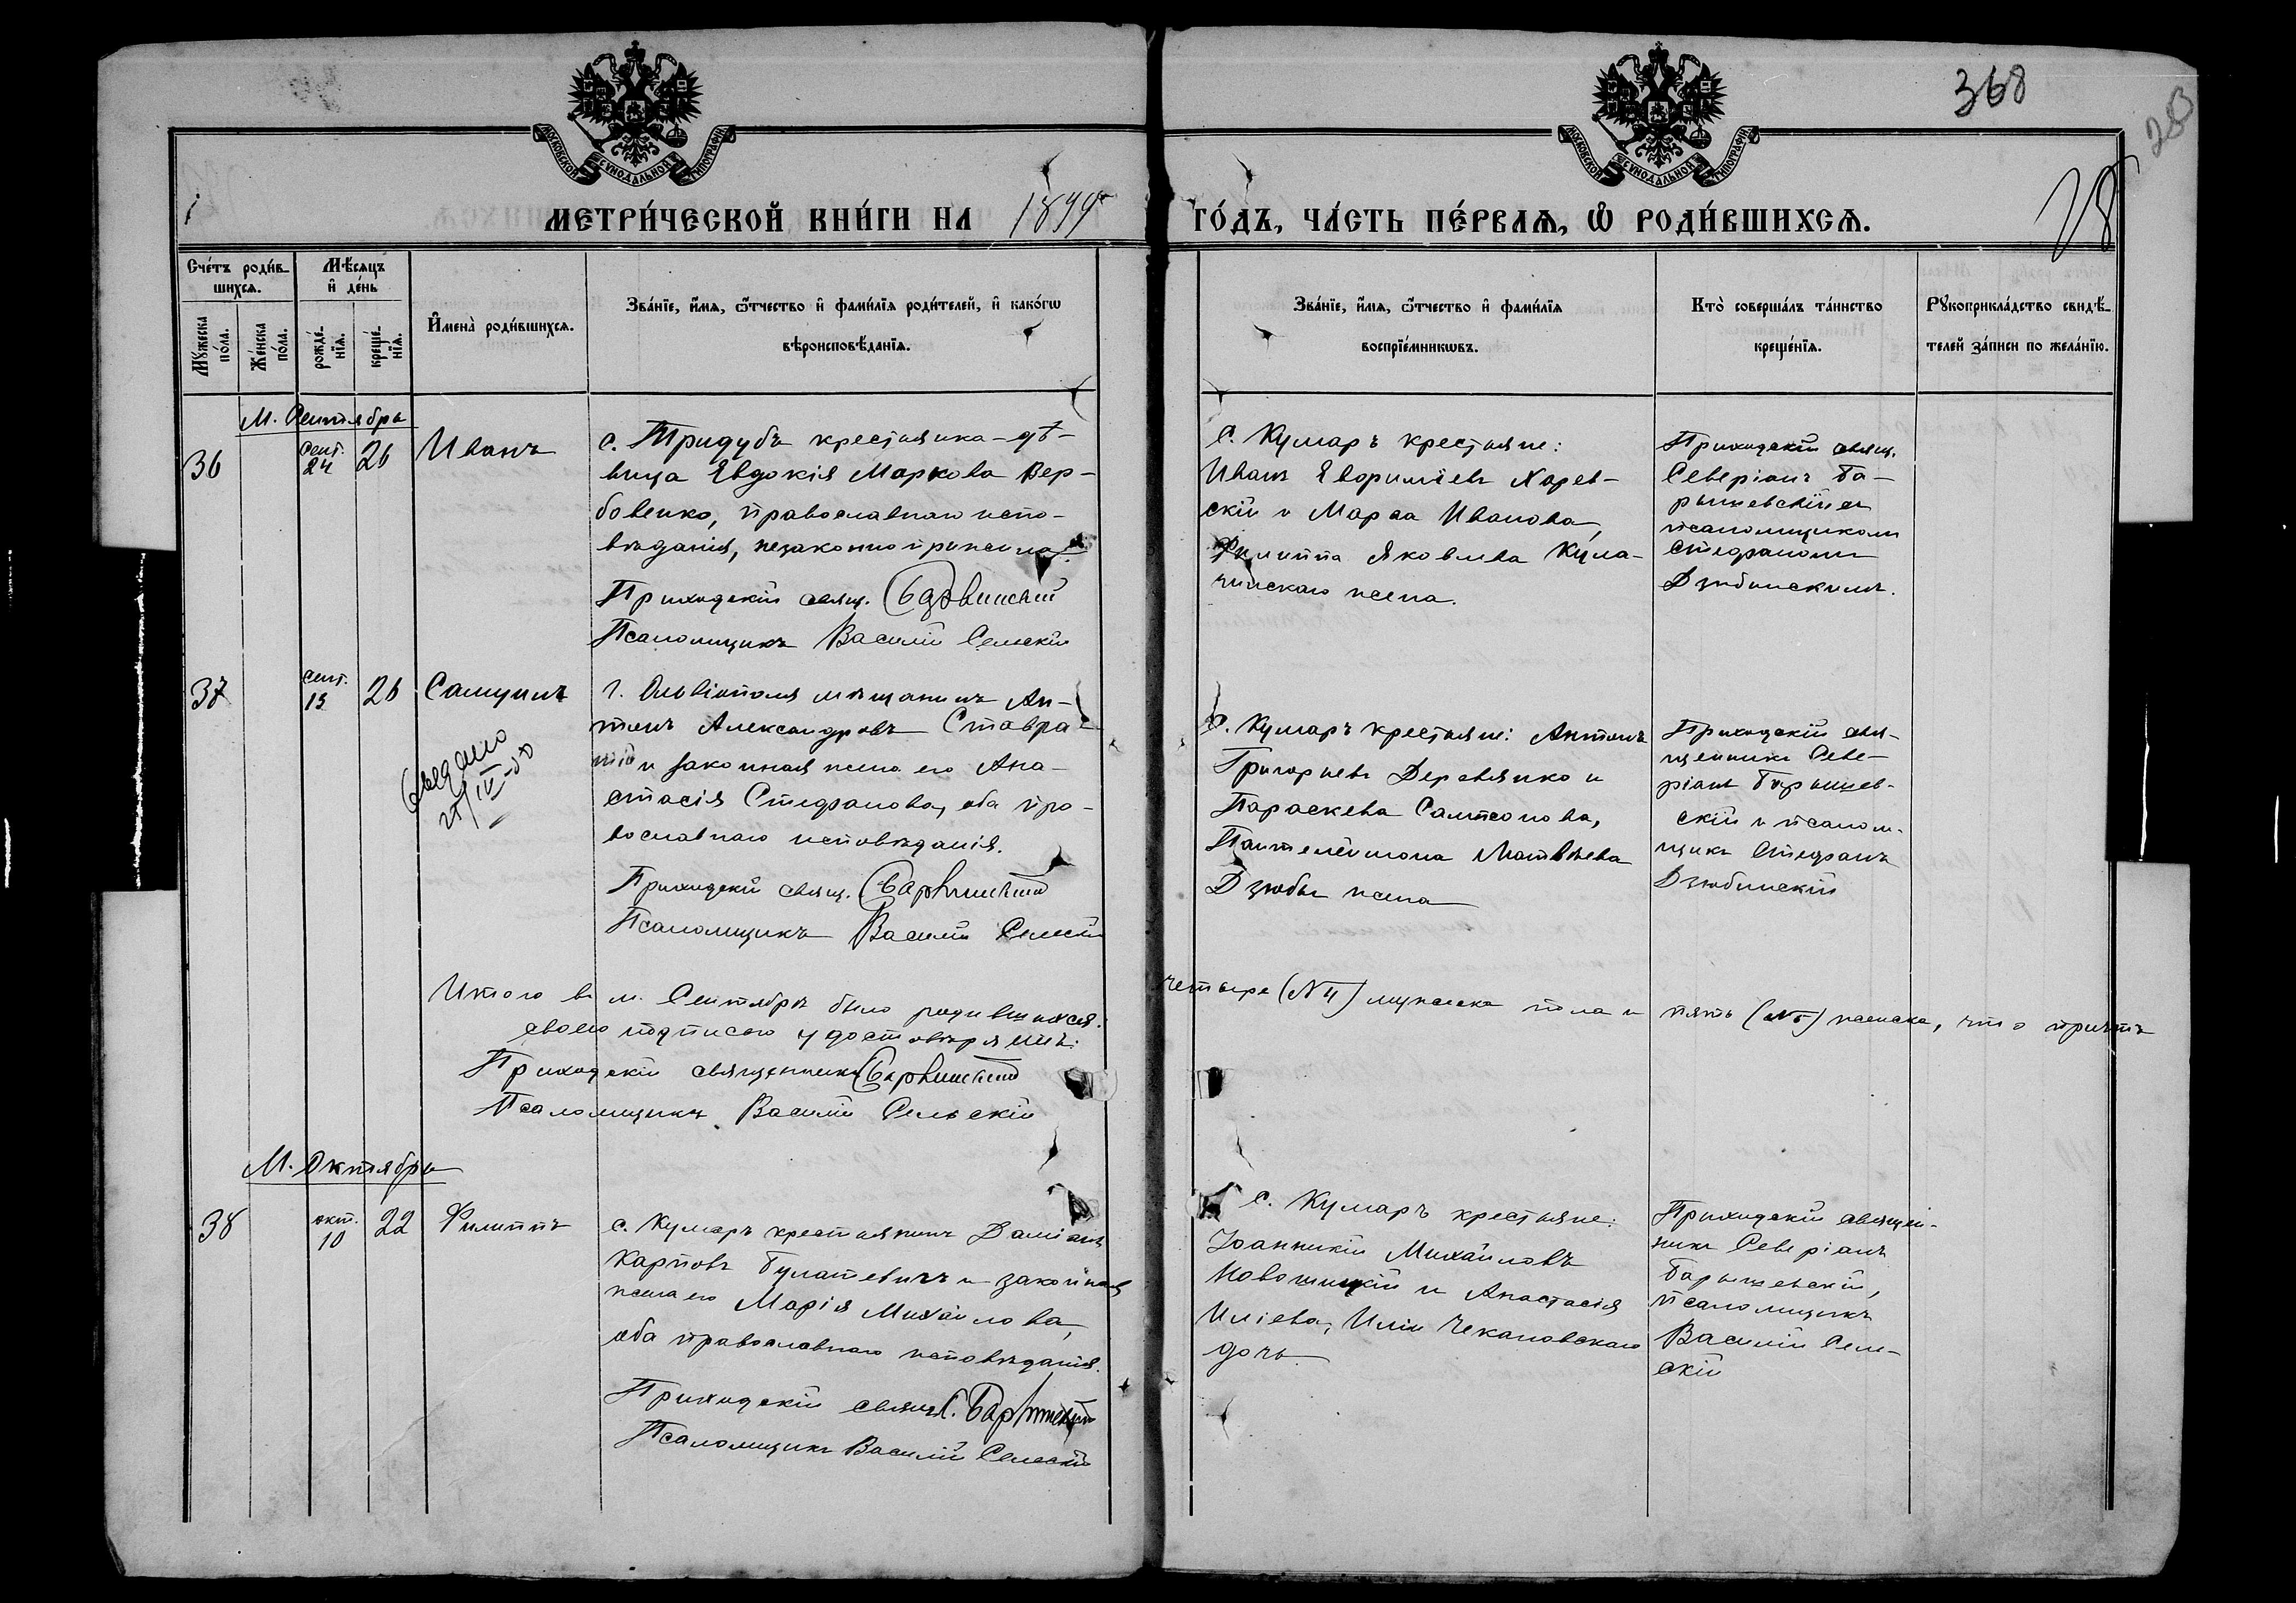 368
283
МОСКОВСКОЙ СѴНОДАЛЬНОЙ ТИПОГРАФІИ
МОСКОВСКОЙ СѴНОДАЛЬНОЙ ТИПОГРАФІИ
МЕТРИ́ЧЕСКОЙ КНИ́ГИ НА 1899
ГО́ДЪ, ЧА́СТЬ ПЕ́РВАѦ, Ѡ РОДИ́ВШИХСѦ.
Сче́тъ роди́в-
шихсѧ.
Мꙋ́жеска по́ла.
Же́нска по́ла.
Мѣ́сѧцъ и҆ де́нь
рожде́-нїѧ.
креще́-нїѧ.
И҆мена̀ роди́вшихсѧ.
Зва́нїе, и҆́мѧ, ѻ҆́тчество и҆ фами́лїѧ роди́телей, и҆ како́гѡ
вѣроисповѣ́данїѧ.
Зва́нїе, и҆́мѧ, ѻ҆́тчество и҆ фами́лїѧ
воспрїе́мникѡвъ.
Кто̀ соверша́лъ та́инство
креще́нїѧ.
Рꙋкоприкла́дство свидѣ́-
телей за́писи по жела́нїю.
М. Сентябрь
36
Сент. 24
26
Иванъ
с. Тридубъ крестьянка-дѣ-
вица Евдокія Маркова Вер-
бовенко, православнаго испо-
вѣданія, незаконно
Приходскій свящ.
Псаломщикъ Василій Сельскій
С. Кумаръ крестьяне:
Иванъ Евѳиміевъ Харев-
скій и Марѳа Иванова,
Филиппа Яковлева Кула-
чинскаго жена.
Приходскій свящ.
Северіанъ Ба-
рышевскій съ
псаломщикомъ
Стефаномъ
Дзюбинскимъ.
37
Сент. 15
26
Самуилъ
г. Ольвіополя мѣщанинъ Ан-
тонъ Александровъ Ставра-
и законная жена его Ана-
стасія Стефанова, оба пра-
вославнаго исповѣданія.
Приходскій свящ.
Псаломщикъ Василій Сельскій
С. Кумаръ крестьяне: Антонъ
Григорьевъ Деревянко и
Параскева Сампсонова,
Пантелеимона Матвѣева
Дзюбы жена
Приходскій свя-
щенникъ Севе-
ріанъ Барышев-
скій и псалом-
щикъ Стефанъ
Дзюбинскій
Итого въ м. Сентябрѣ было родившихся: четыре (№ 4) мужеска пола и пять (№ 5) женска, что причтъ
своею подписью удостовѣряетъ:
Приходскій священникъ
Псаломщикъ Василій Сельскій
М. Октябрь
38
окт. 10
22
Филиппъ
с. Кумаръ крестьянинъ Даміанъ
Карповъ Булатевичъ и законная
жена его Марія Михаилова,
оба православнаго исповѣданія.
Приходскій свящ. С.
Псаломщикъ Василій Сельскій
С. Кумаръ крестьяне:
Іоанникій Михаиловъ
Новошицкій и Анастасія
Иліева, Иліи Чекановскаго
дочь.
Приходскій священ-
никъ Северіанъ
Барышевскій,
псаломщикъ
Василій Сель-
скій